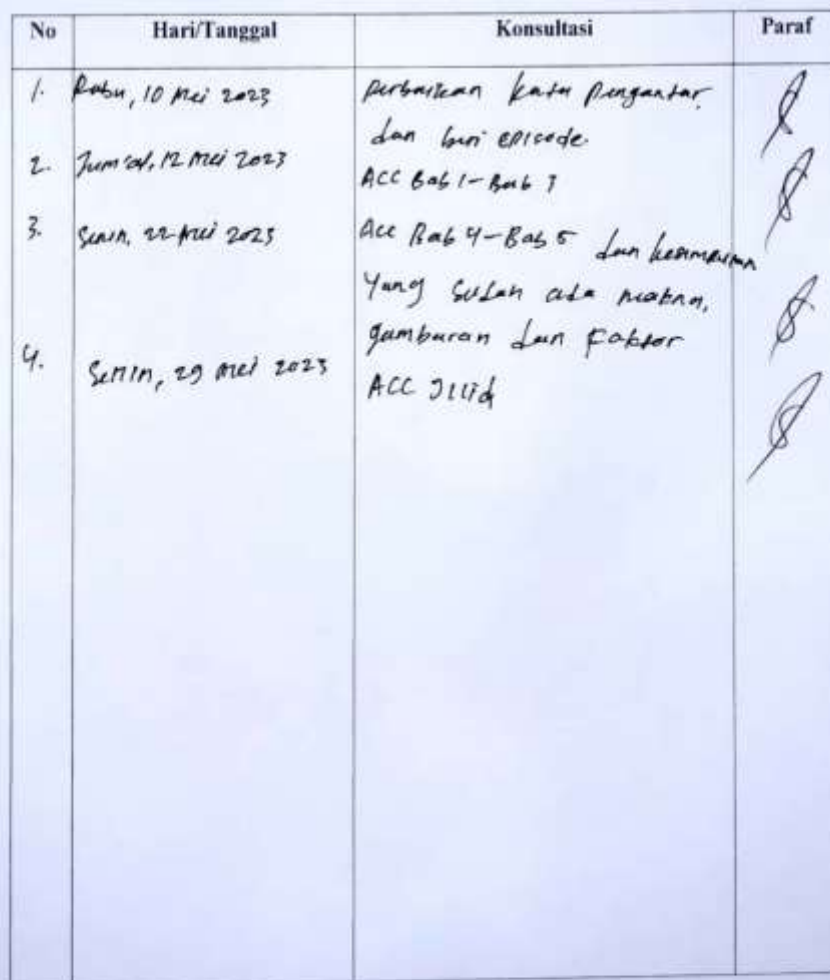 No Hari/Tanggal Konsultasi Paraf
1. Rabu, 10 Mei 2023 perbaikan kata pengantar
dan beri episode.
2. Jum'at, 12 Mei 2023
ACC Bab 1-Bab 3
3. Senin, 22 Mei 2023 Acc Bab 4-Bab 5 dan kesimpulan
yang sudah ada makna,
gambaran dan Faktor
4. Senin, 29 Mei 2023
ACC